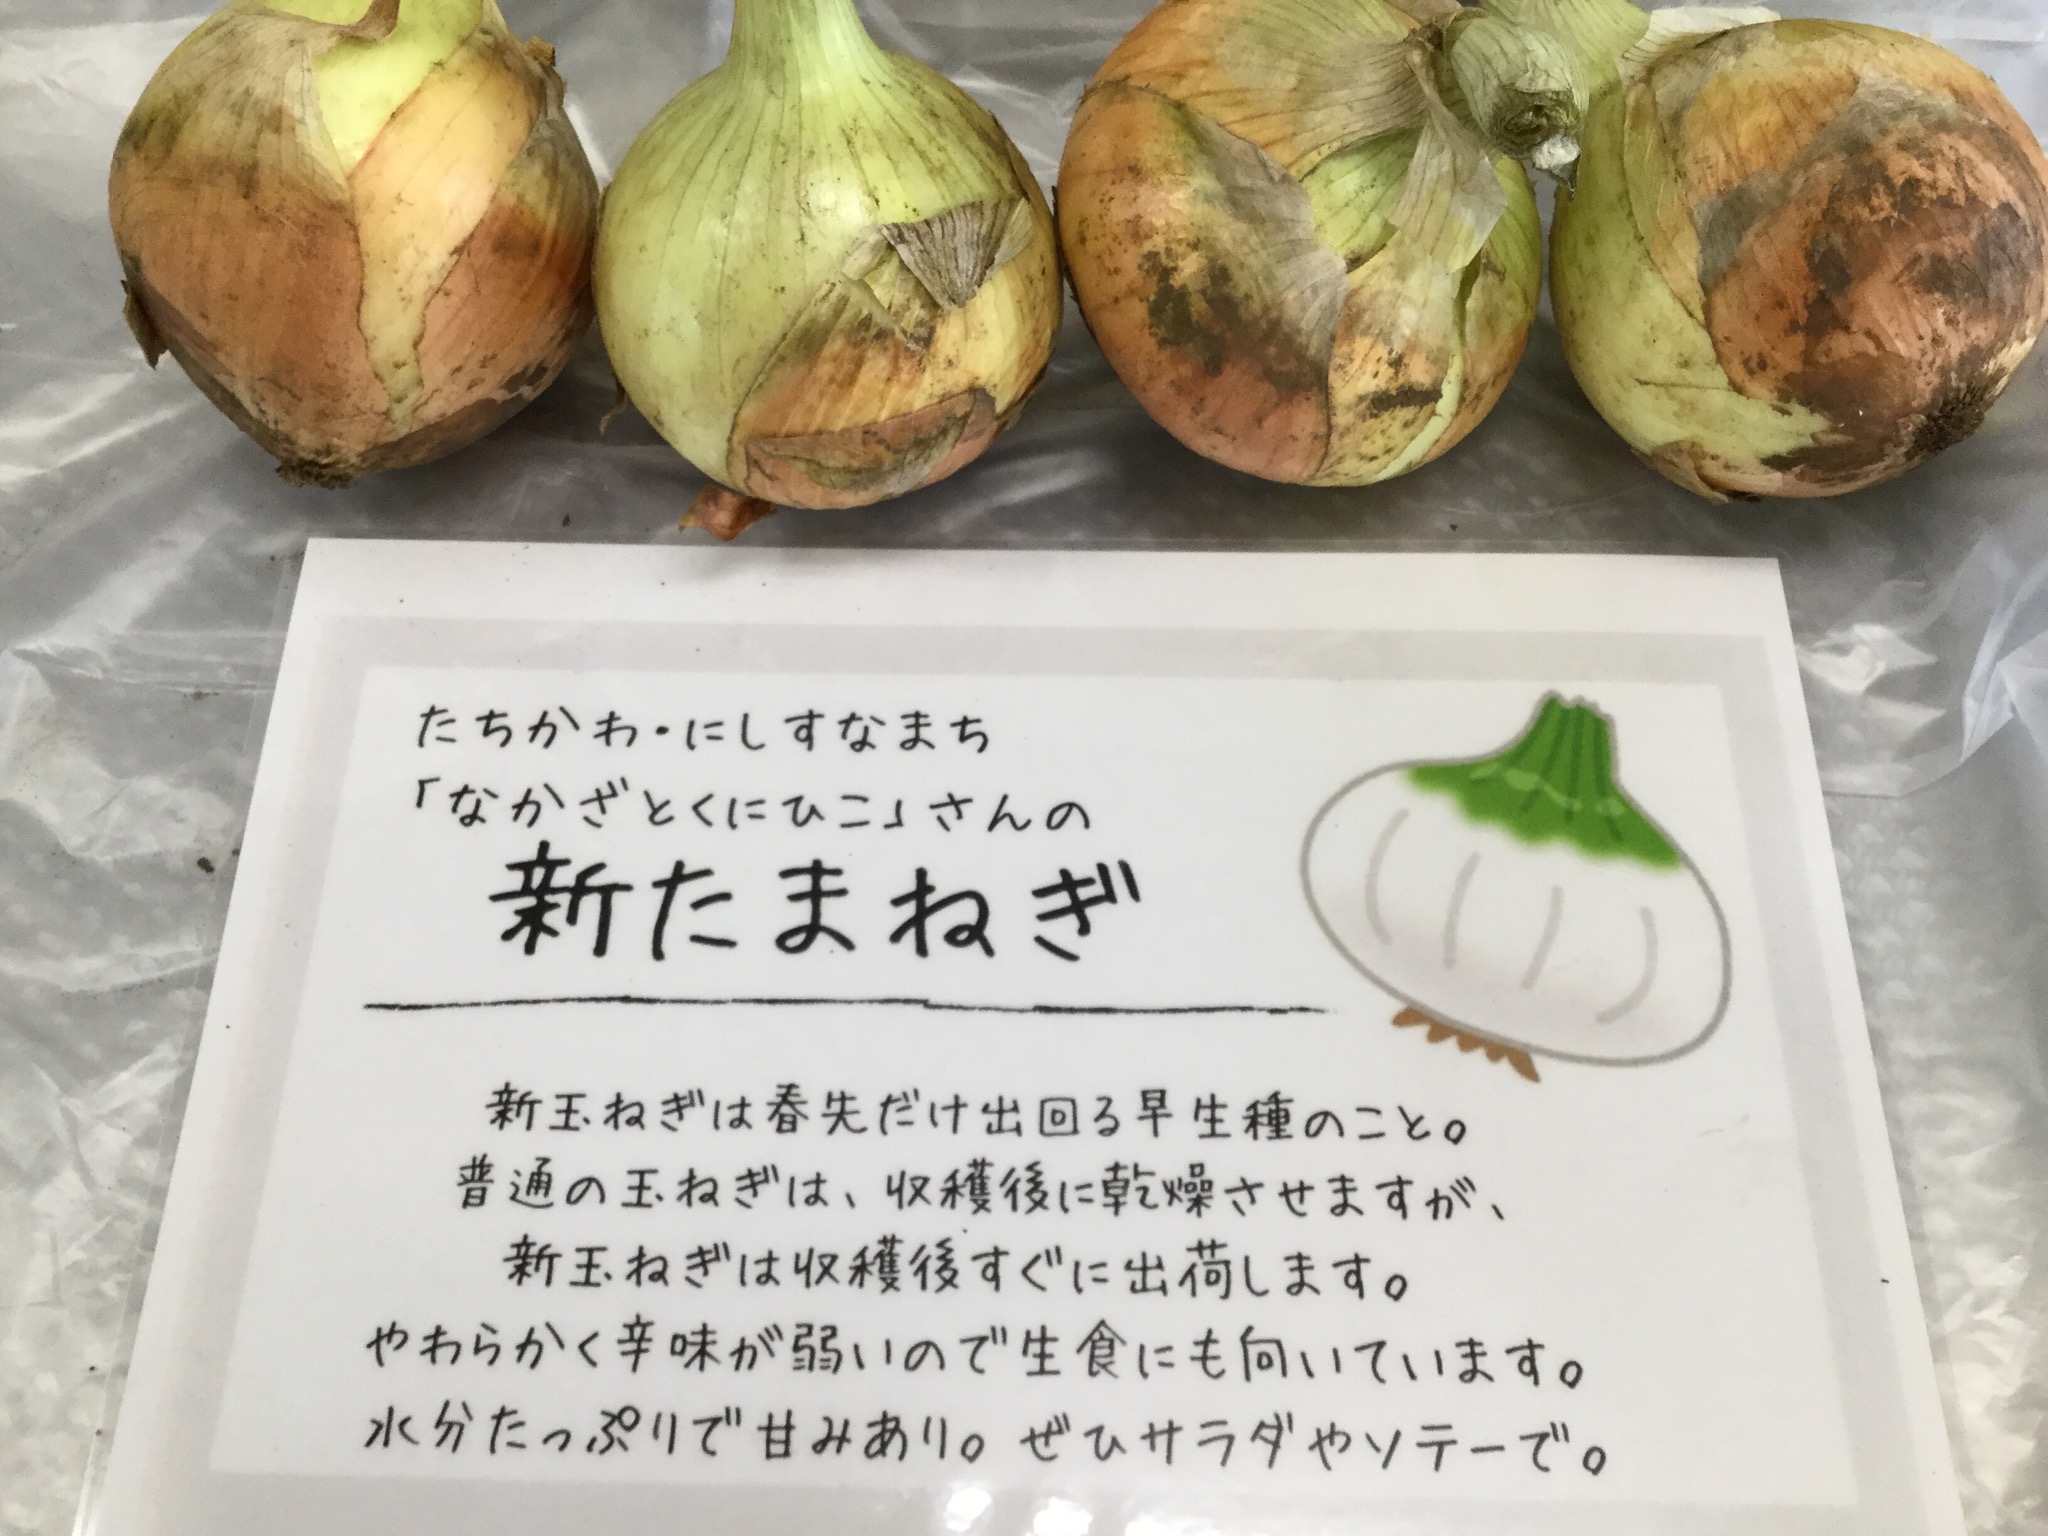 たちかわ・にしすなまち
「なかざとくにひこ」さんの
新たまねぎ
新玉ねぎは春先だけ出回る早生種のこと。
普通の玉ねぎは、収穫後に乾燥させますが、
新玉ねぎは収穫後すぐに出荷します。
やわらかく辛味が弱いので生食にも向いています。
水分たっぷりで甘みあり。ぜひサラダやソテーで。